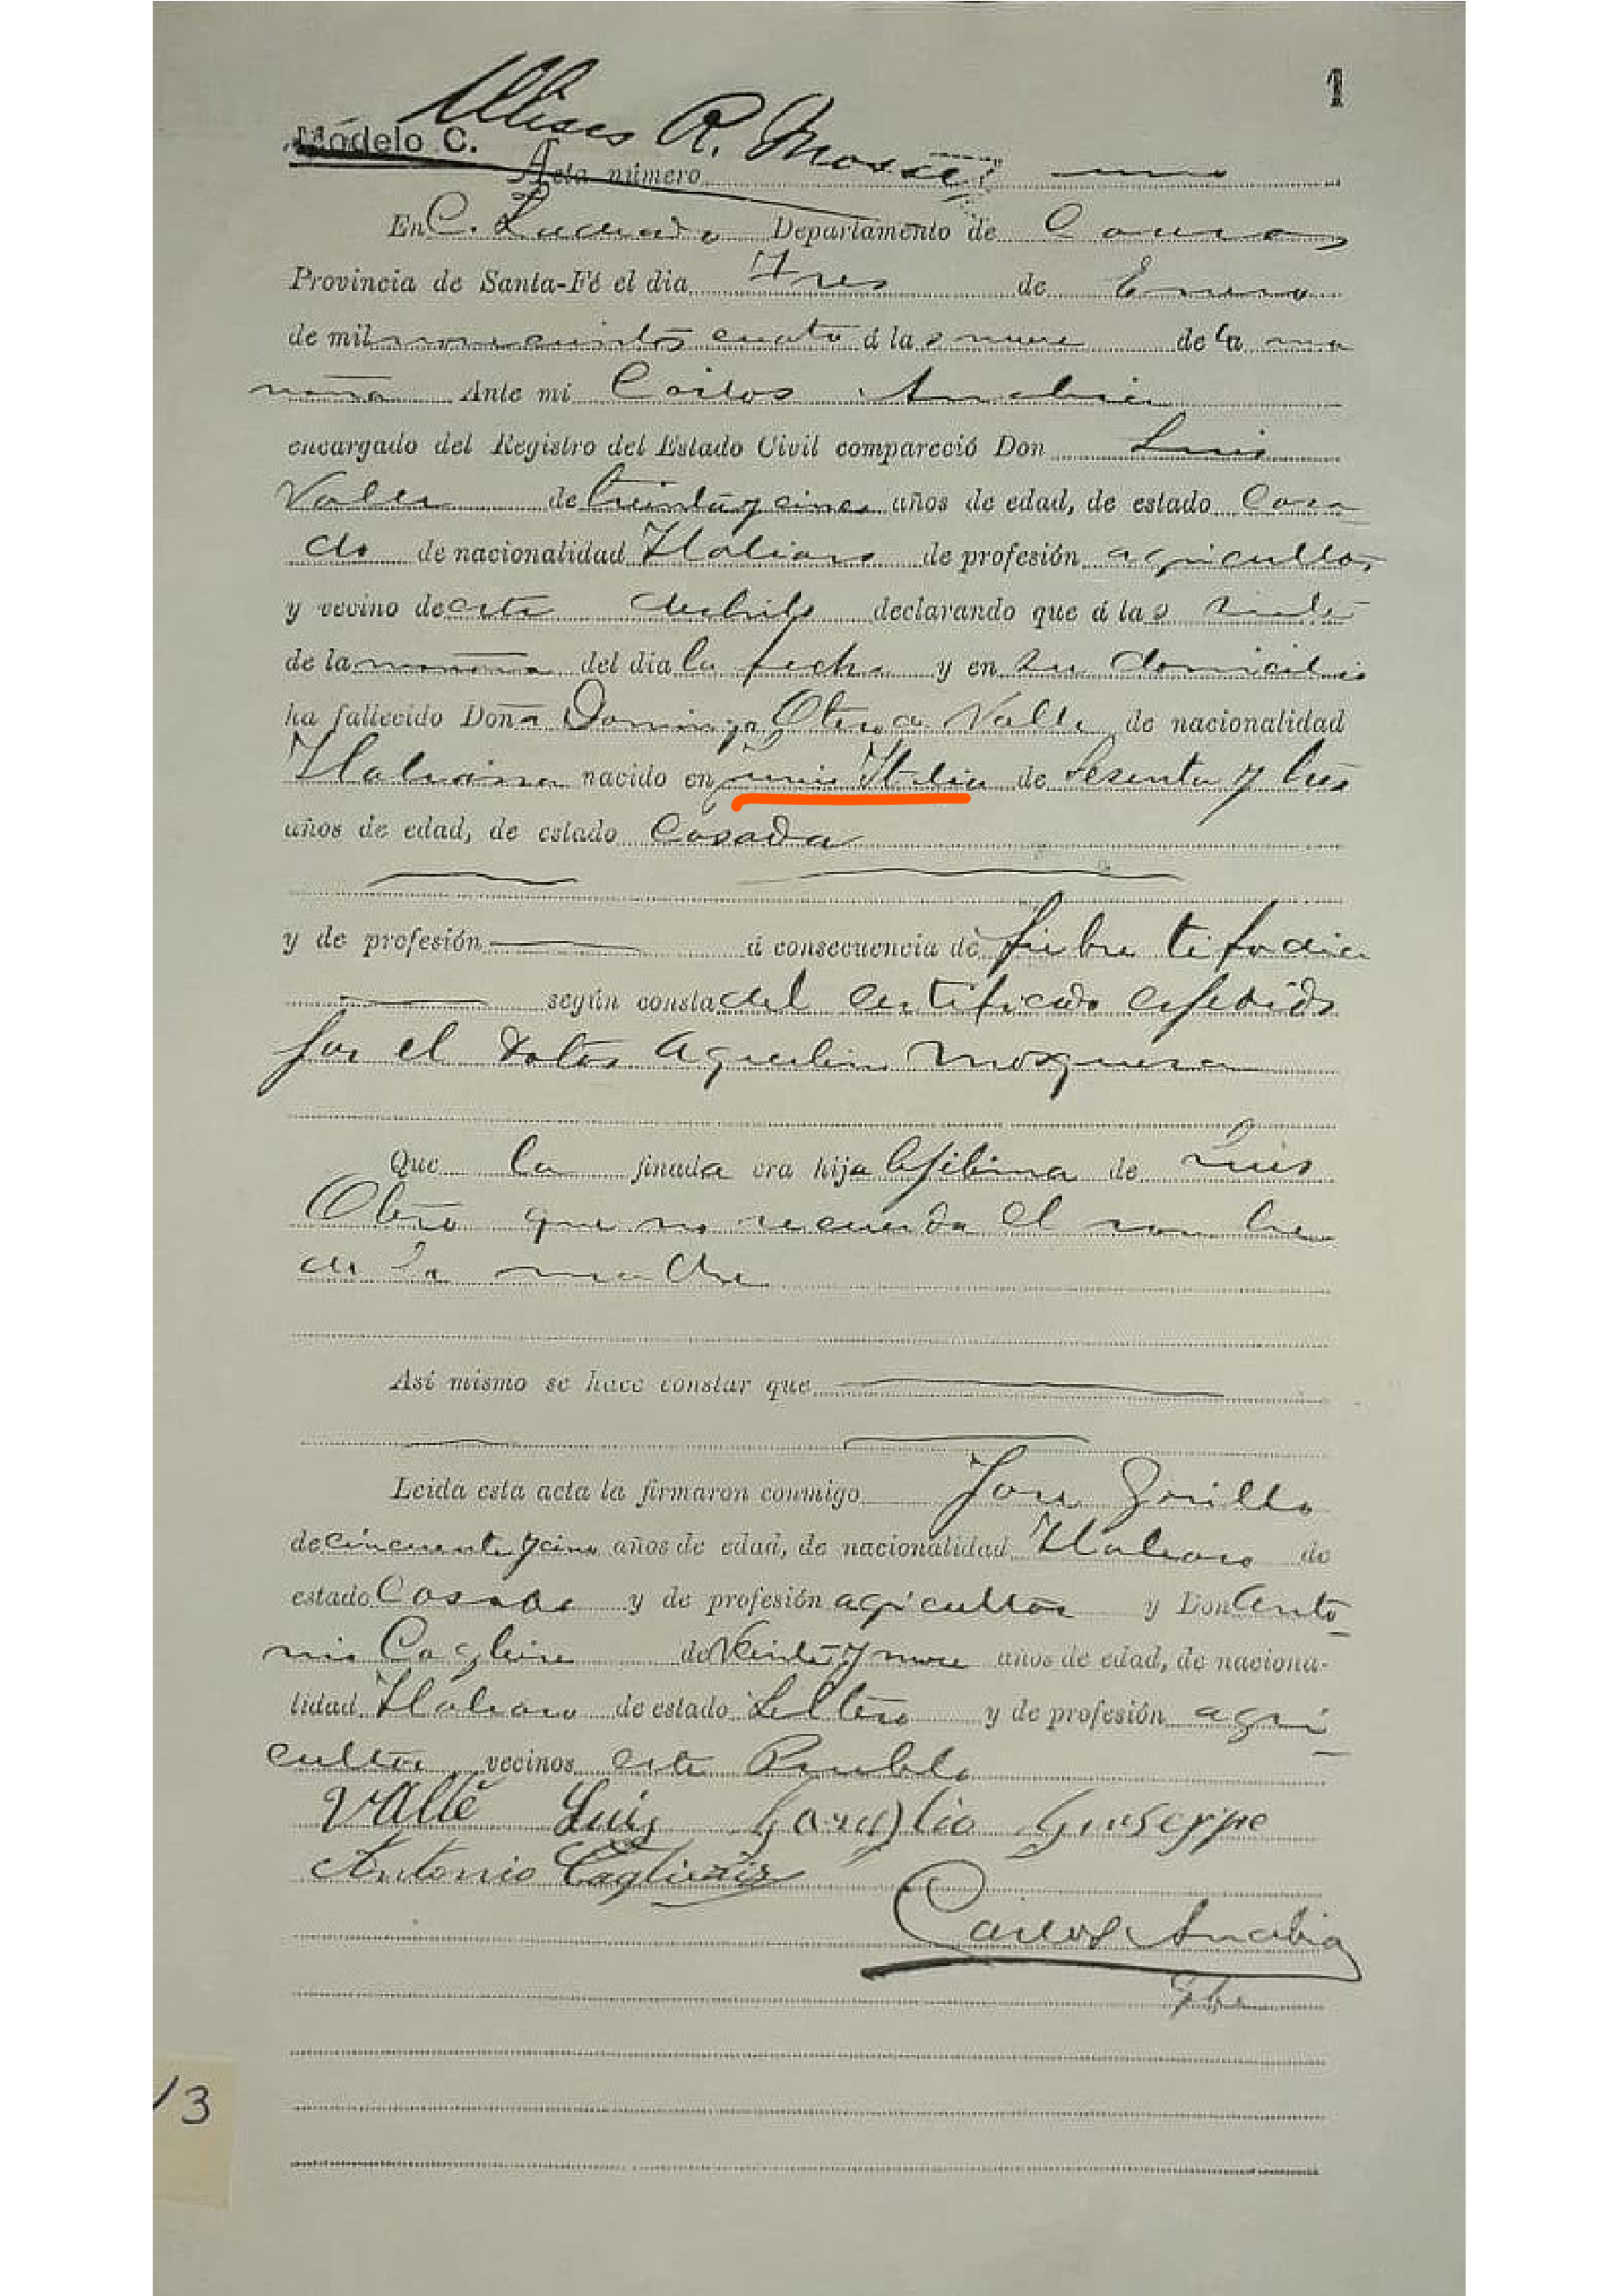 1
Ulises R. Mosset
Modelo C.
Acta número uno
En C. Departamento de
Provincia de Santa-Fé el dia tres de Enero
de mil novecientos cuatro á las nueve de la ma
ñana Ante mi Carlos
encargado del Registro del Estado Civil compareció Don Luis
Valle de treinta y cinco años de edad, de estado Casa
do de nacionalidad Italiano de profesión agricultor
y vecino de este declarando que á las siete
de la mañana del dia la fecha y en su domicilio
ha fallecido Doña Valle de nacionalidad
Italiana nacido en Italia de Sesenta y tres
años de edad, de estado Casada
y de profesión á consecuencia de fiebre tifodia
según consta del certificado espedido
por el Mosquera
Que la finada era hija lejitima de Luis
que no recuerda el nombre
de la madre
Asi mismo se hace constar que
Leida esta acta la firmaron conmigo Jose
de cincuenta y cinco años de edad, de nacionalidad Italiano de
estado Casado y de profesión agricultor y Don Anto
nio de veinte y nueve años de edad, de naciona-
lidad Italiano de estado Soltero y de profesión agri
cultor vecinos este Pueblo
Valle Luis Giuseppe
Antonio
Carlos
13